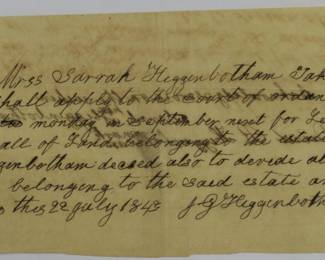 Mrss Sarrah Heggenbotham Tak
hall apply to the court of ordan
monday in september next for Le
all of Land belonging to the estat
genbotham decasd also to devide a
belonging to the said estate an
this 22 july 1843 J G Heggenboth